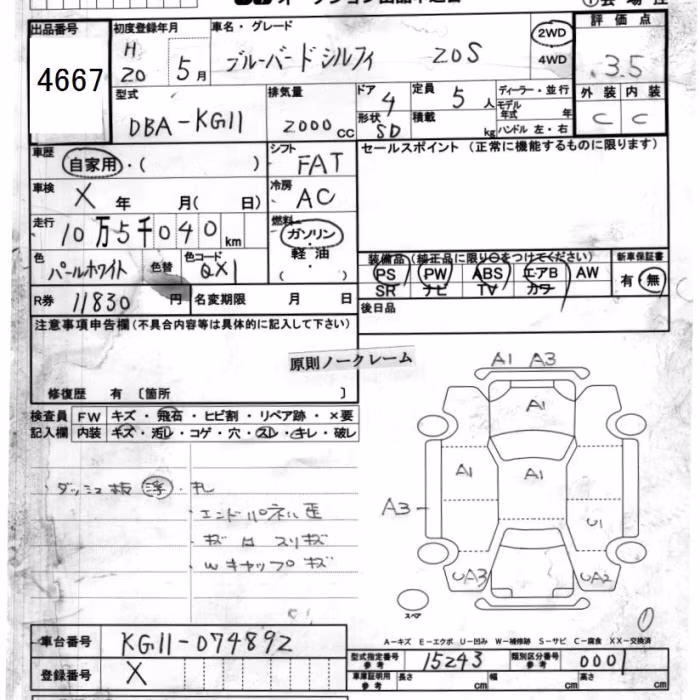 出品番号
4667
初度登録年月
H
20 5月
車名・グレード
ブルーバードシルフィ 20S
2WD
4WD
評価点
3.5
外装 内装
C C
型式
DBA-KG11
排気量
2000cc
ドア
4
形状
SD
定員
5人
積載
kg
ディーラー・並行
モデル年式 年
ハンドル 左・右
車歴
自家用・( )
シフト
FAT
セールスポイント (正常に機能するものに限ります)
車検
X 年 月( 日)
冷房
AC
走行
10万5千040km
燃料
ガソリン
・
軽油
( )
色
パールホワイト
色替
色コード
QX1
装備品(純正品に限り○をつけてください)
新車保証書
PS PW ABS エアB AW
有・無
SR ナビ TV カワ
R券 11830円 名変期限 月 日
後日品
注意事項申告欄(不具合内容等は具体的に記入して下さい)
原則ノークレーム
修復歴 有 〔箇所 〕
検査員
記入欄
FW キズ・飛石・ヒビ割・リペア跡・×要
内装 キズ・汚レ・コゲ・穴・スレ・キレ・破レ
・ダッシュ板 浮・札
エンドパネル歪
Wキャップキズ
A1 A3
A1
A1 A1
A3
U1
UA3 UA2
スペア
A-キズ E-エクボ U-凹み W-補修跡 S-サビ C-腐食 XX-交換済
車台番号 KG11-074892
登録番号 X
型式指定番号
参考
15243
類別区分番号
参考
0001
車庫証明用
参考
長さ cm 幅 cm 高さ cm